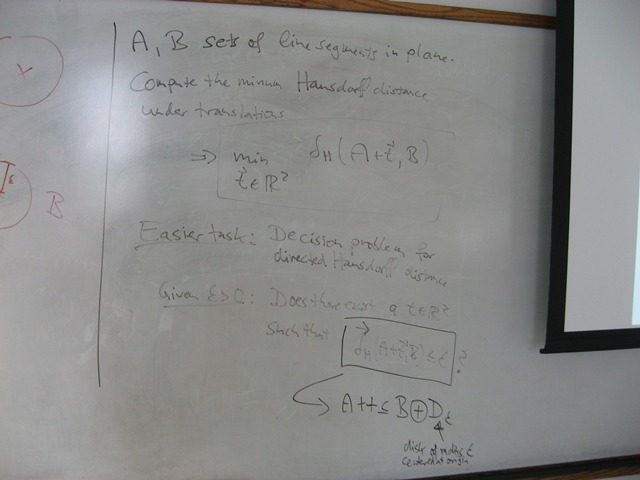 A, B sets of line segments in plane.
Compute the minum Hausdorff distance
under translations
⇒ min δH(A+t⃗, B)
t⃗∈ℝ²
Easier task: Decision problem for
directed Hausdorff distance
Given ε>0: Does there exist a t∈ℝ²
such that
δ⃗H(A+t⃗,B)≤ε ?
A+t ⊆ B⊕Dε
disk of radius ε
centered at origin
ε
B